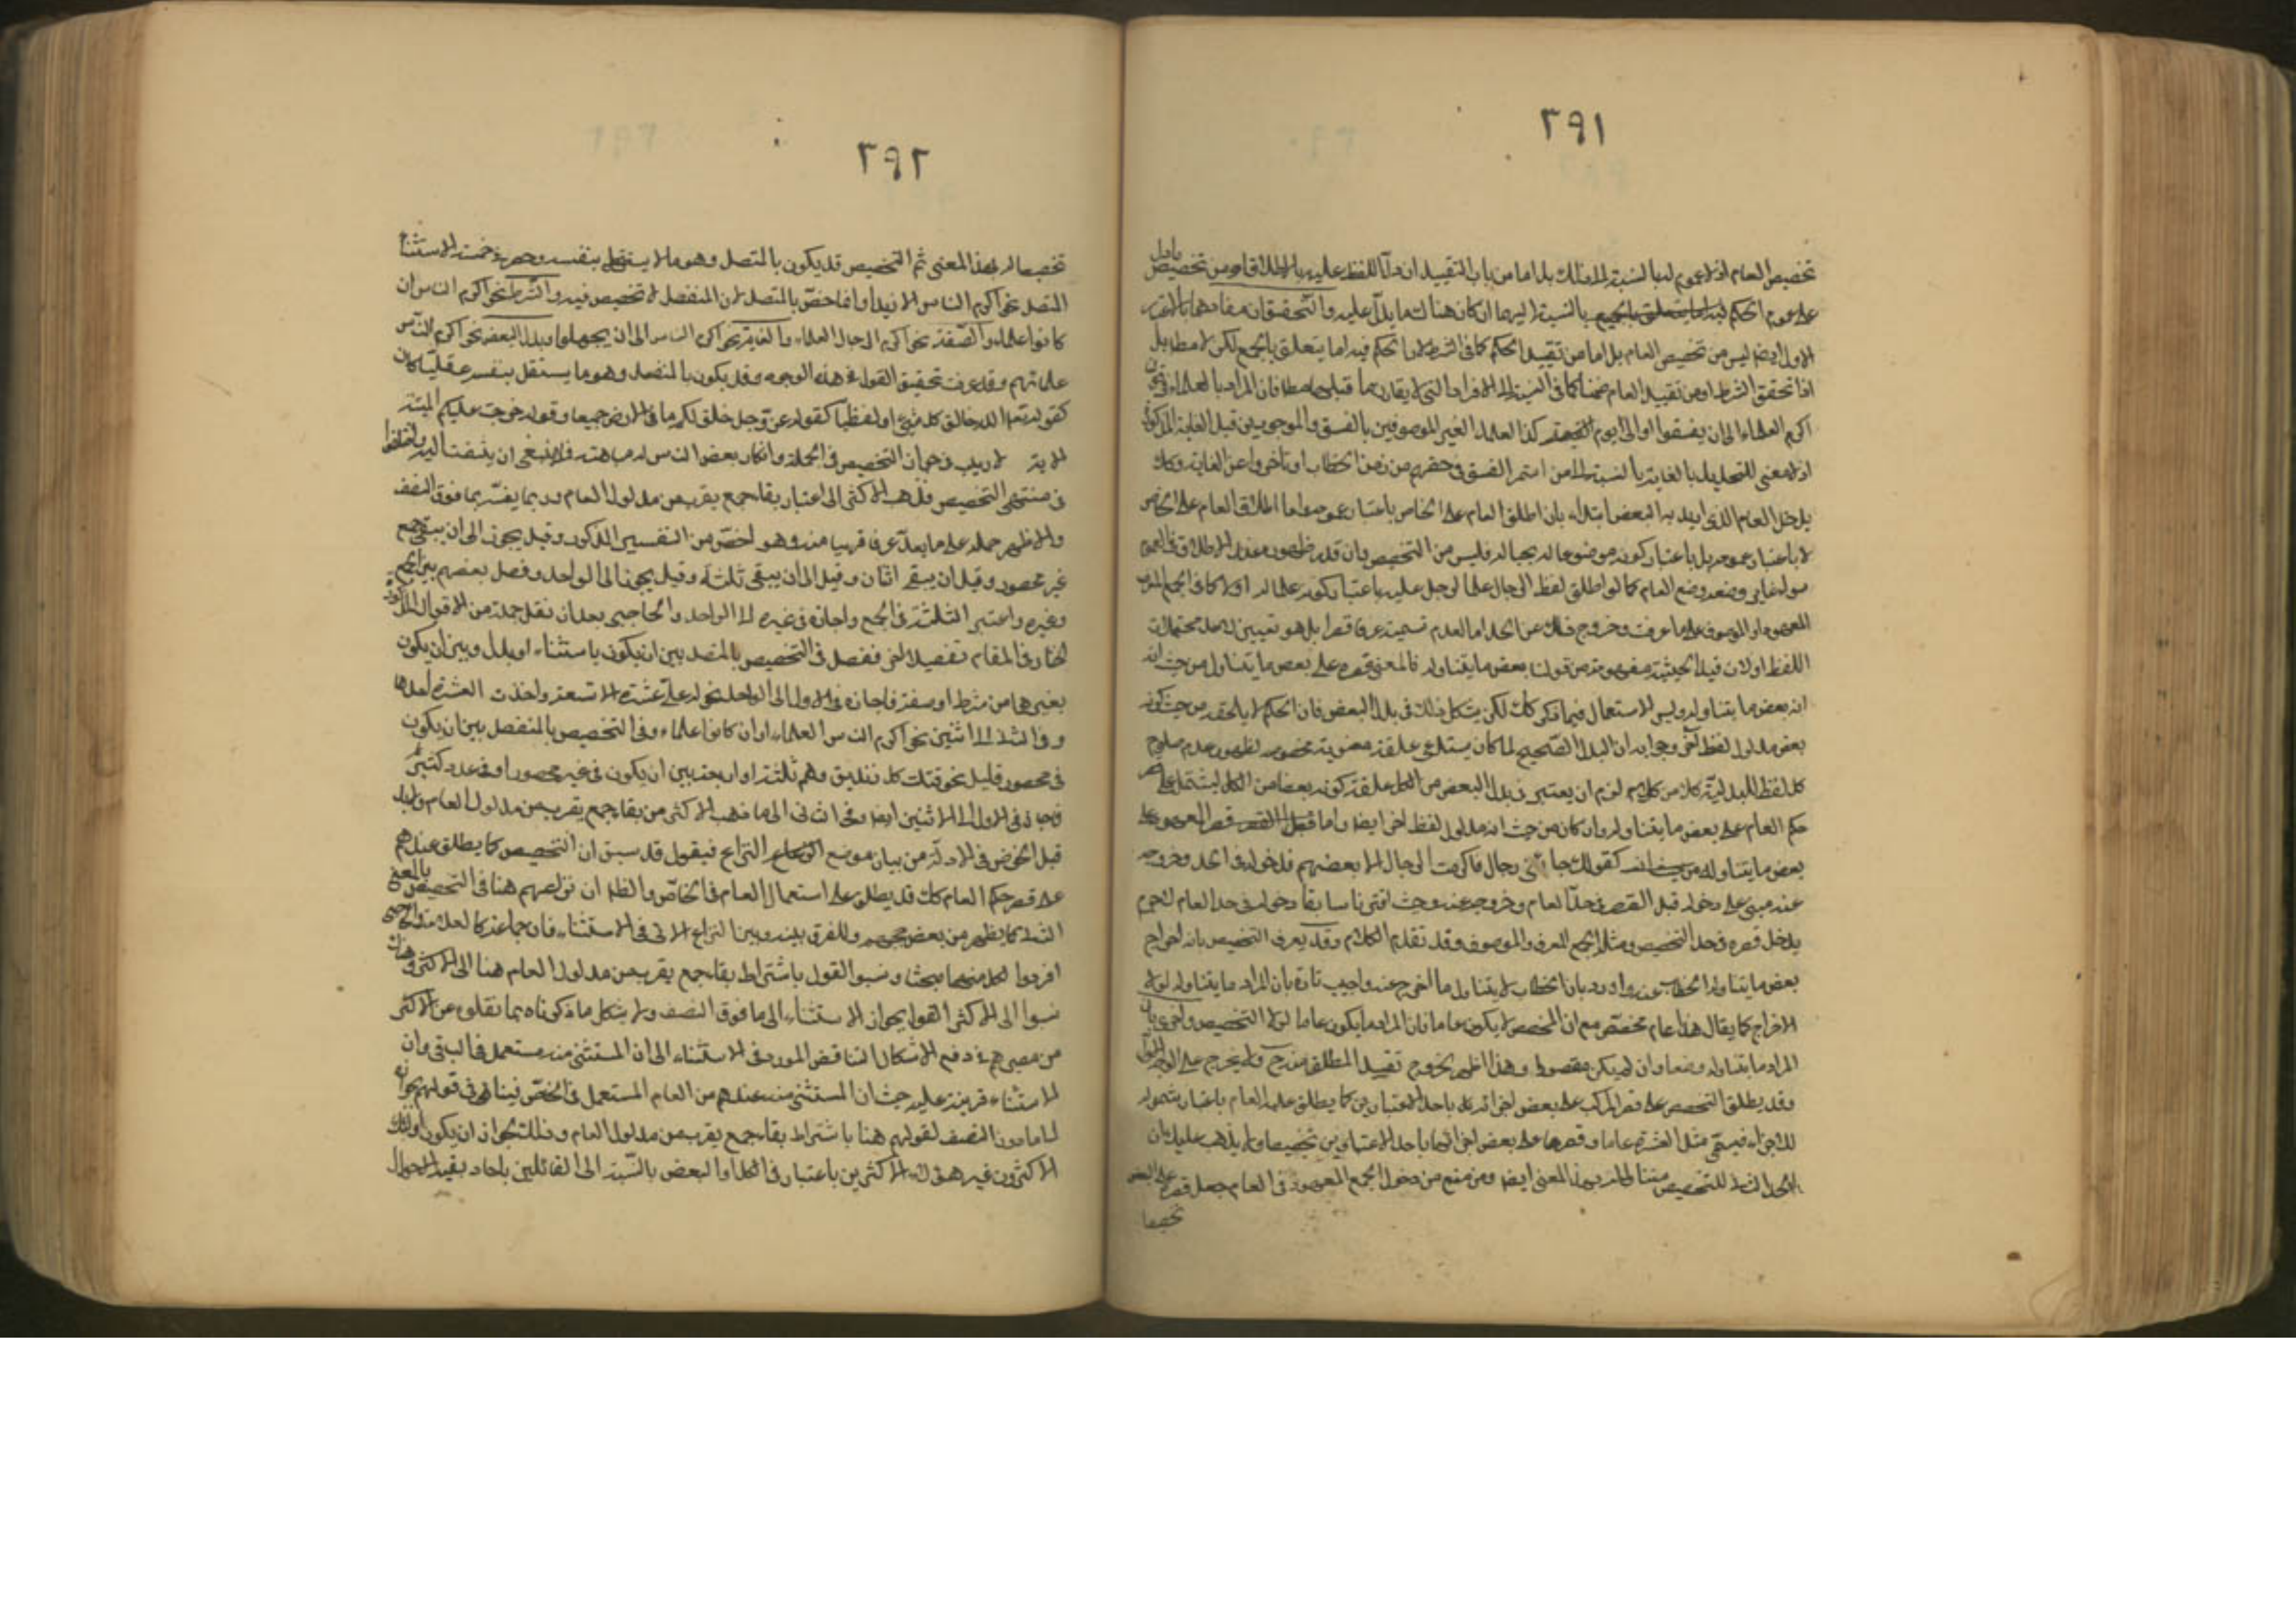 ٢٩١
تخصيص العام اذ لا عموم له بالنسبة الى ذلك بل اما من باب التقييد ان دل اللفظ عليه بالاطلاق او من تخصيص
على عموم الحكم بالنسبة اليها ان كان هناك ما يدل عليه والتحقيق ان مفادها بالتقدير
الاول ايضا ليس من تخصيص العام بل اما من تقييد الحكم كما في الشرط لان الحكم فيه اما يتعلق بالجميع لكن لا مطلقا بل
اذا تحقق الشرط او من تقييد العام ضمنا كما في النسبة الى الافراد التي لا يقارن ما قبلها مطلقا فان المراد بالعلماء في
اكرم العلماء الى ان يفسقوا او الى يوم كذا العلماء الغير الموصوفين بالفسق والموجودين قبل الغاية المذكورة
اذ لا معنى للتحليل بالغاية بالنسبة الى من استمر الفسق في حقهم من زمن الخطاب او تأخروا عن الغاية وكك
يدخل العام الذي ابدل به البعض ابتداء بان اطلق العام على الخاص باعتبار عمومه واما اطلاق العام على الخاص
لا باعتبار عمومه بل باعتبار كونه موضوعا له بحياله فليس من التخصيص وان قدر ظهوره عند الاطلاق في العموم
سواء غاير وضعه وضع العام كما لو اطلق لفظ الرجال علما لرجل عليه باعتبار كونه علما له او لا كما في الجمع المعرف
المعهود او الموصوف على ما عرفت وخروج ذلك عن الحد اما لعدم تسميته عرفا قصرا بل هو تعيين لاحد محتملات
اللفظ او لان قيد الحيثية مفهومة من قولنا بعض ما يتناوله فالمعنى قصره على بعض ما يتناوله من حيث انه
انه بعض ما يتناوله وليس الاستعمال فيما ذكر كك لكن يشكل ذلك في بدل البعض فان الحكم لا يلحقه من حيث كونه
بعض مدلول لفظ آخر وجوابه ان البدل الصحيح لما كان يستدعي علقة معنوية مخصوصة لظهور عدم صلوح
كل لفظ للبدلية كلا من كل لزم ان يعتبر في بدل البعض من الكل علقة كونه بعضا من الكل ليشتمل على قصر
حكم العام على بعض ما يتناوله وان كان من حيث انه مدلول لفظ اخر ايضا واما قصر المعهود على
بعض ما يتناوله كقولك جاءني رجال فاكرمت الرجال الا بعضهم فدخوله في الحد وخروجه
عنه مبني على دخوله قبل القصر في حد العام وخروجه عنه وحيث اخترنا سابقا دخوله في حد العام لا جرم
يدخل قصره في حد التخصيص ومثله الجمع المعرف والموصوف وقد تقدم الكلام وقد يعرف التخصيص بانه اخراج
بعض ما يتناوله الخطاب عنه واورد بان الخطاب لا يتناول ما اخرج عنه واجيب تارة بان المراد ما يتناوله لولا
الاخراج كما يقال هذا عام مخصص مع ان المخصص لا يكون عاما فان المراد ما يكون عاما لولا التخصيص واخرى بان
المراد ما يتناوله وضعا وان لم يكن مقصودا وهذا اظهر بخروج تقييد المطلق منه ح ولا يخرج على الوجه الاول
وقد يطلق التخصيص على قصر المركب على بعض اجزائه باحد الاعتبارين كما يطلق عليه العام باعتبار شموله
للاجزاء فيسمى مثل العشرة عاما وقصرها على بعض اجزائها باحد الاعتبارين تخصيصا ولا يذهب عليك ان
الحد الثاني للتخصيص متناول له بهذا المعنى ايضا ومن منع من دخول الجمع المعهود في العام جعل قصره على البعض
تخصيصا
٢٩٢
تخصيصا له بهذا المعنى ثم التخصيص قد يكون بالمتصل وهو ما لا يستقل بنفسه وحصر في خمسة الاستثناء
المتصل نحو اكرم الناس الا زيدا وانما خص بالمتصل لان المنفصل لا تخصيص فيه والشرط نحو اكرم الناس ان
كانوا علماء والصفة نحو اكرم الرجال العلماء والغاية نحو اكرم الناس الى ان يجهلوا وبدل البعض نحو اكرم الناس
علماءهم وقد عرفت تحقيق القول في هذه الوجوه وقد يكون بالمنفصل وهو ما يستقل بنفسه عقليا كان
كقوله تعالى الله خالق كل شيء او لفظيا كقوله عز وجل خلق لكم ما في الارض جميعا وقوله حرمت عليكم الميتة
الاية لا ريب في جواز التخصيص في الجملة وانكار بعض الناس له مباهتة فلا ينبغي ان يلتفت اليه واختلفوا
في منتهى التخصيص فذهب الاكثر الى اعتبار بقاء جمع يقرب من مدلول العام وربما يفسر بما فوق النصف
والاظهر حمله على ما يعد عرفا قريبا منه وهو اخص من التفسير المذكور وقيل يجوز الى ان يبقى جمع
غير محصور وقيل ان يبقى اثنان وقيل الى ان يبقى ثلثة وقيل يجوز الى الواحد وفصل بعضهم بين الجمع
وغيره واعتبر الثلثة في الجمع واجاز في غيره الى الواحد والحاجبي بعد ان نقل جملة من الاقوال المذكورة
اختار في المقام تفصيلا اخر ففصل في التخصيص بالمتصل بين ان يكون باستثناء او بدل وبين ان يكون
بغيرهما من شرط او صفة فاجازه في الاول الى الواحد نحو له علي عشرة الا تسعة واخذت العشرة احدها
وفي الثاني الى اثنين نحو اكرم الناس العلماء او ان كانوا علماء وفي التخصيص بالمنفصل بين ان يكون
في محصور قليل نحو قتلت كل زنديق وهم ثلثة او اربعة وبين ان يكون في غير محصور او في عدد كثير
فاجاز في الاول الى الاثنين ايضا وفي الثاني الى ما ذهب الاكثر من بقاء جمع يقرب من مدلول العام ولابد
قبل الخوض في الادلة من بيان موضع النزاع فيقول قد سبق ان التخصيص كما يطلق عندهم
على قصر حكم العام كك قد يطلق على استعمال العام في الخاص والظاهر ان نزاعهم هنا في التخصيص بالمعنى
الثاني كما يظهر من بعض حججهم وللفرق بينه وبين النزاع الاتي في الاستثناء فان جماعة كالعلامة والحاجبي
افردوا لكل منهما مبحثا ونسبوا القول باشتراط بقاء جمع يقرب من مدلول العام هنا الى الاكثر وهناك
نسبوا الى الاكثر القول بجواز الاستثناء الى ما فوق النصف ولا يشكل ما ذكرناه بما نقلوه عن الاكثر
من مصيرهم في دفع الاشكال التناقض المورد في الاستثناء الى ان المستثنى منه مستعمل في الباقي وان
الاستثناء قرينة عليه حيث ان المستثنى منه عندهم من العام المستعمل في الخاص فينافي قولهم بجوازه
الى ما دون النصف لقولهم هنا باشتراط بقاء جمع يقرب من مدلول العام وذلك لجواز ان يكون اولئك
الاكثرون غير هؤلاء الاكثرين باعتبار في الكل او البعض بالنسبة الى القائلين باحاد بقية الاحوال